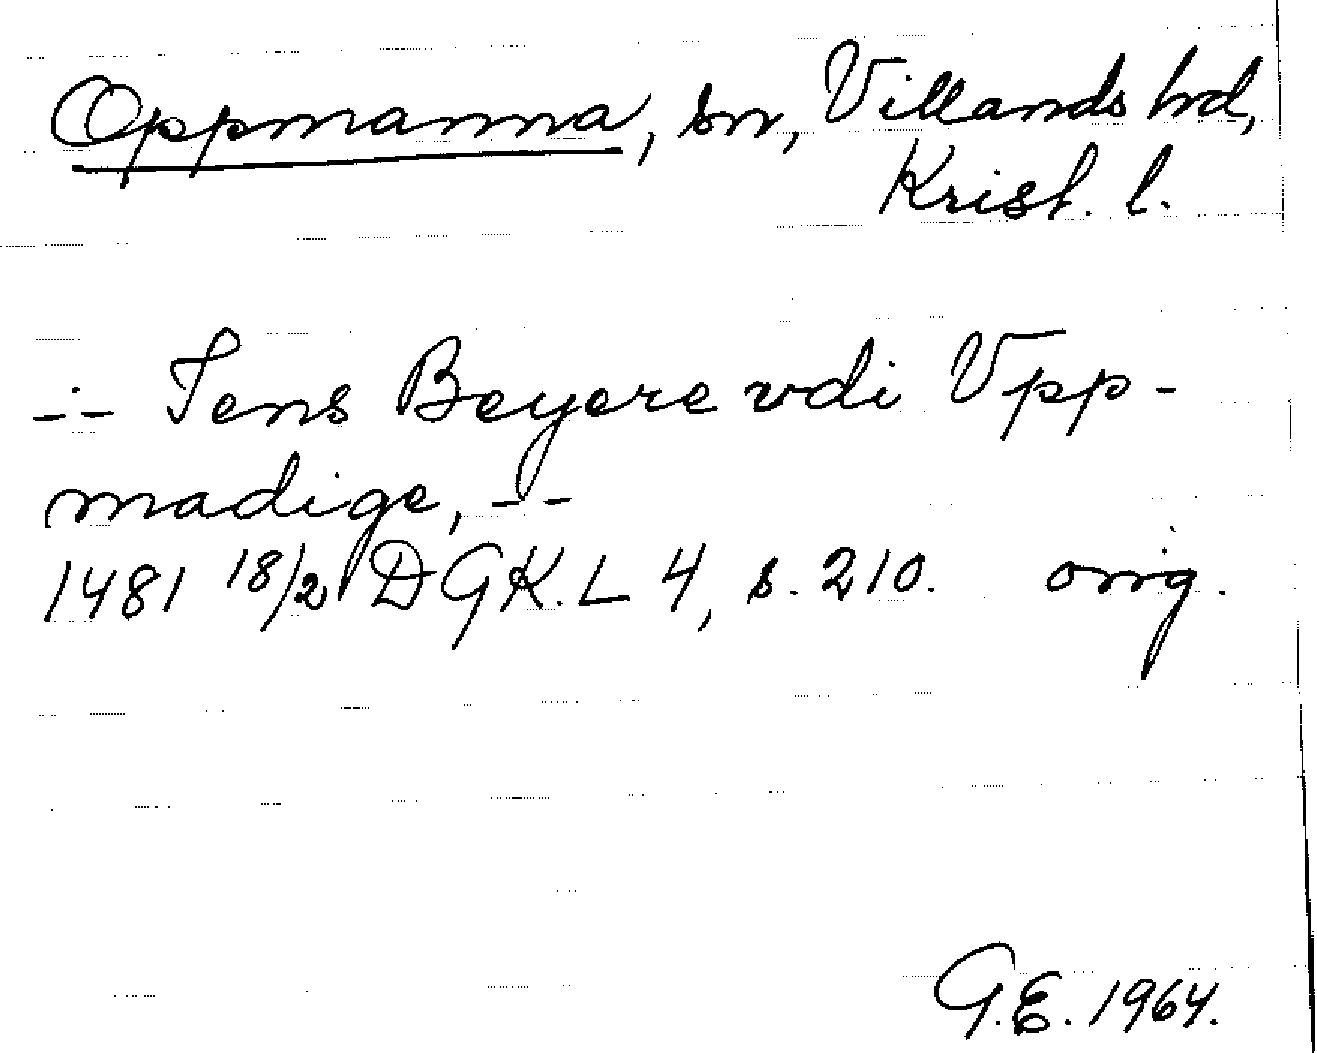 Oppmanna, sn, Villands hd,
Krist. l.
-- Jens Beyere vdi Vpp-
madige, --
1481 18/2 DGK.L 4, s. 210. orig.
G.E. 1964.